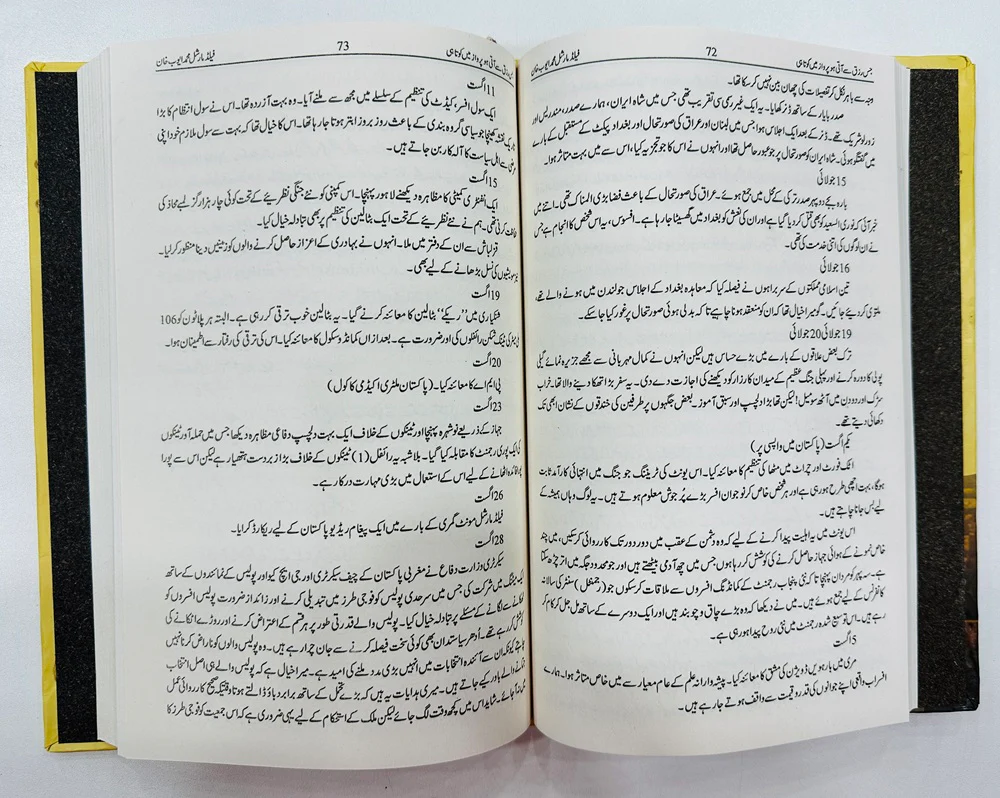 جس رزق سے آتی ہو پرواز میں کوتاہی
72
فیلڈ مارشل محمد ایوب خان
وجہ سے باہر نکل کر تفصیلات کی چھان بین نہیں کر سکا تھا۔
صدر بایار کے ساتھ ڈنر کھایا۔ یہ ایک غیر رسمی سی تقریب تھی جس میں شاہ ایران، ہمارے صدر، مندریس اور
زورلو شریک تھے۔ ڈنر کے بعد ایک اجلاس ہوا جس میں لبنان اور عراق کی صورتحال اور بغداد پیکٹ کے مستقبل کے بارے
میں گفتگو ہوئی۔ شاہ ایران کو صورتحال پر جو عبور حاصل تھا اور انہوں نے اس کا جو تجزیہ کیا، اس سے میں بہت متاثر ہوا۔
15 جولائی
بارہ بجے دوپہر صدر ترکی کے محل میں جمع ہوئے۔ عراق کی صورتحال کے باعث فضا بڑی المناک تھی۔ اتنے میں
خبر آئی کہ نوری السعید کو بھی قتل کر دیا گیا ہے اور ان کی نعش کو بغداد میں گھسیٹا جا رہا ہے۔ افسوس، یہ اس شخص کا انجام ہے جس
نے ان لوگوں کی اتنی خدمت کی تھی۔
16 جولائی
تین اسلامی مملکتوں کے سربراہوں نے فیصلہ کیا کہ معاہدہ بغداد کے اجلاس جو لندن میں ہونے والے تھے،
ملتوی کر دیئے جائیں۔ گو میرا خیال تھا کہ ان کو منعقد ہونا چاہیے تاکہ بدلی ہوئی صورتحال پر غور کیا جا سکے۔
19 جولائی 20 جولائی
ترک بعض علاقوں کے بارے میں بڑے حساس ہیں لیکن انہوں نے کمال مہربانی سے مجھے جزیرہ نمائے گیلی
پولی کا دورہ کرنے اور پہلی جنگ عظیم کے میدان کارزار کو دیکھنے کی اجازت دے دی۔ یہ سفر بڑا تھکا دینے والا تھا۔ خراب
سڑک اور دو دن میں آٹھ سو میل! لیکن تھا بڑا دلچسپ اور سبق آموز۔ بعض جگہوں پر طرفین کی خندقوں کے نشان ابھی تک
دکھائی دیتے تھے۔
یکم اگست (پاکستان میں واپسی پر)
اٹک فورٹ اور چراٹ میں مٹھا کی تنظیم کا معائنہ کیا۔ اس یونٹ کی ٹریننگ جو جنگ میں انتہائی کارآمد ثابت
ہوگا، بہت اچھی طرح ہو رہی ہے اور ہر شخص خاص کر نوجوان افسر بڑے پُر جوش معلوم ہوتے ہیں۔ یہ لوگ وہاں ہمیشہ کے
لیے بس جانا چاہتے ہیں۔
اس یونٹ میں یہ اہلیت پیدا کرنے کے لیے کہ وہ دشمن کے عقب میں دور دور تک کارروائی کر سکیں، میں چند
خاص نمونے کے ہوائی جہاز حاصل کرنے کی کوشش کر رہا ہوں جس میں چھ آدمی بیٹھتے ہیں اور جو محدود جگہ میں اتر چڑھ سکتا
ہے۔ سہ پہر کو مردان پہنچا تاکہ نئی پنجاب رجمنٹ کے کمانڈنگ افسروں سے ملاقات کر سکوں جو (رجمنٹل) سنٹر کی سالانہ
کانفرنس کے لیے جمع ہوئے ہیں۔ میں نے دیکھا کہ وہ بڑے چاق و چوبند ہیں اور ایک دوسرے کے ساتھ مل جل کر کام کر
رہے ہیں۔ اس توسیع شدہ رجمنٹ میں نئی روح پیدا ہو رہی ہے۔
5 اگست
مری میں بارہویں ڈویژن کی مشق کا معائنہ کیا۔ پیشہ ورانہ علم کے عام معیار سے میں خاص متاثر ہوا۔ ہمارے
افسر اب واقعی اپنے جوانوں کی قدر و قیمت سے واقف ہوتے جا رہے ہیں۔
رزق سے آتی ہو پرواز میں کوتاہی
73
فیلڈ مارشل محمد ایوب خان
11 اگست
ایک سول افسر، کیڈٹ کی تنظیم کے سلسلے میں مجھ سے ملنے آیا۔ وہ بہت آزردہ تھا۔ اس نے سول انتظام کا بڑا
تاریک نقشہ کھینچا جو سیاسی گروہ بندی کے باعث روز بروز ابتر ہوتا جا رہا تھا۔ اس کا خیال تھا کہ بہت سے سول ملازم خود اپنی
مرضی سے اہل سیاست کا آلہ کار بن جاتے ہیں۔
15 اگست
ایک انفنٹری کمپنی کا مظاہرہ دیکھنے لاہور پہنچا۔ اس کمپنی کو نئے جنگی نظریئے کے تحت کوئی چار ہزار گز لمبے محاذ کی
حفاظت کرنی تھی۔ ہم نے نئے نظریئے کے تحت ایک بٹالین کی تنظیم پر بھی تبادلہ خیال کیا۔
قزلباش سے ان کے دفتر میں ملا۔ انہوں نے بہادری کے اعزاز حاصل کرنے والوں کو زمینیں دینا منظور کر لیا۔
مویشیوں کی نسل بڑھانے کے لیے بھی۔
19 اگست
شنکیاری میں ”ریکے“ بٹالین کا معائنہ کرنے گیا۔ یہ بٹالین خوب ترقی کر رہی ہے۔ البتہ ہر پلاٹون کو 106
ٹینک شکن رائفلوں کی اور ضرورت ہے۔ بعد ازاں کمانڈو سکول کا معائنہ کیا۔ اس کی ترقی کی رفتار سے اطمینان ہوا۔
20 اگست
پی ایم اے کا معائنہ کیا۔ (پاکستان ملٹری اکیڈمی کاکول)
23 اگست
جہاز کے ذریعے نوشہرہ پہنچا اور ٹینکوں کے خلاف ایک بہت دلچسپ دفاعی مظاہرہ دیکھا جس میں حملہ آور ٹینکوں
کی ایک پوری رجمنٹ کا مقابلہ کیا گیا۔ بلاشبہ یہ رائفل (1) ٹینکوں کے خلاف بڑا زبردست ہتھیار ہے لیکن اس سے پورا
پورا فائدہ اٹھانے کے لیے اس کے استعمال میں بڑی مہارت درکار ہے۔
26 اگست
فیلڈ مارشل مونٹ گمری کے بارے میں ایک پیغام ریڈیو پاکستان کے لیے ریکارڈ کرایا۔
28 اگست
سیکرٹری وزارت دفاع نے مغربی پاکستان کے چیف سیکرٹری اور جی ایچ کیو اور پولیس کے نمائندوں کے ساتھ
ایک میٹنگ میں شرکت کی جس میں سرحدی پولیس کو فوجی طرز میں تبدیل کرنے اور زائد از ضرورت پولیس افسروں کو
ٹھکانے لگانے کے مسئلے پر تبادلہ خیال کیا۔ پولیس والے قدرتی طور پر ہر قسم کے اعتراض کرنے اور روڑے اٹکانے کی
کوشش کر رہے تھے۔ اُدھر سیاستدان بھی کوئی سخت فیصلہ کرنے سے جان چرا رہے ہیں۔ وہ پولیس والوں کو ناراض کرنا نہیں
چاہتے کیونکہ ان سے آئندہ انتخابات میں انہیں بڑی مدد ملنے کی امید ہے۔ میرا خیال ہے کہ پولیس والے ہی اصل انتخاب
جتانے والے باور کیے جاتے ہیں۔ میری ہدایات یہ ہیں کہ بڑے تحمل کے ساتھ برابر دباؤ ڈالتے رہو تا وقتیکہ صحیح کارروائی عمل
میں آ جائے۔ شاید اس میں کچھ وقت لگ جائے لیکن ملک کے استحکام کے لیے یہی ضروری ہے کہ اس جمعیت کو فوجی طرز کا